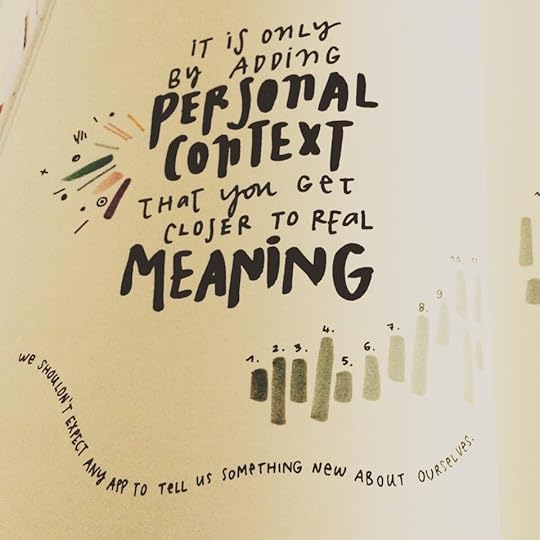 iT iS ONLY
BY ADDING
PERSONAL
CONTEXT
THAT YOU GET
CLOSER TO REAL
MEANING
1. 2. 3. 4. 5. 6. 7. 8. 9. 10. 11.
We SHOULDN'T EXPECT ANY APP TO TeLL US SOMeTHING NeW ABOUT OURSeLVeS.